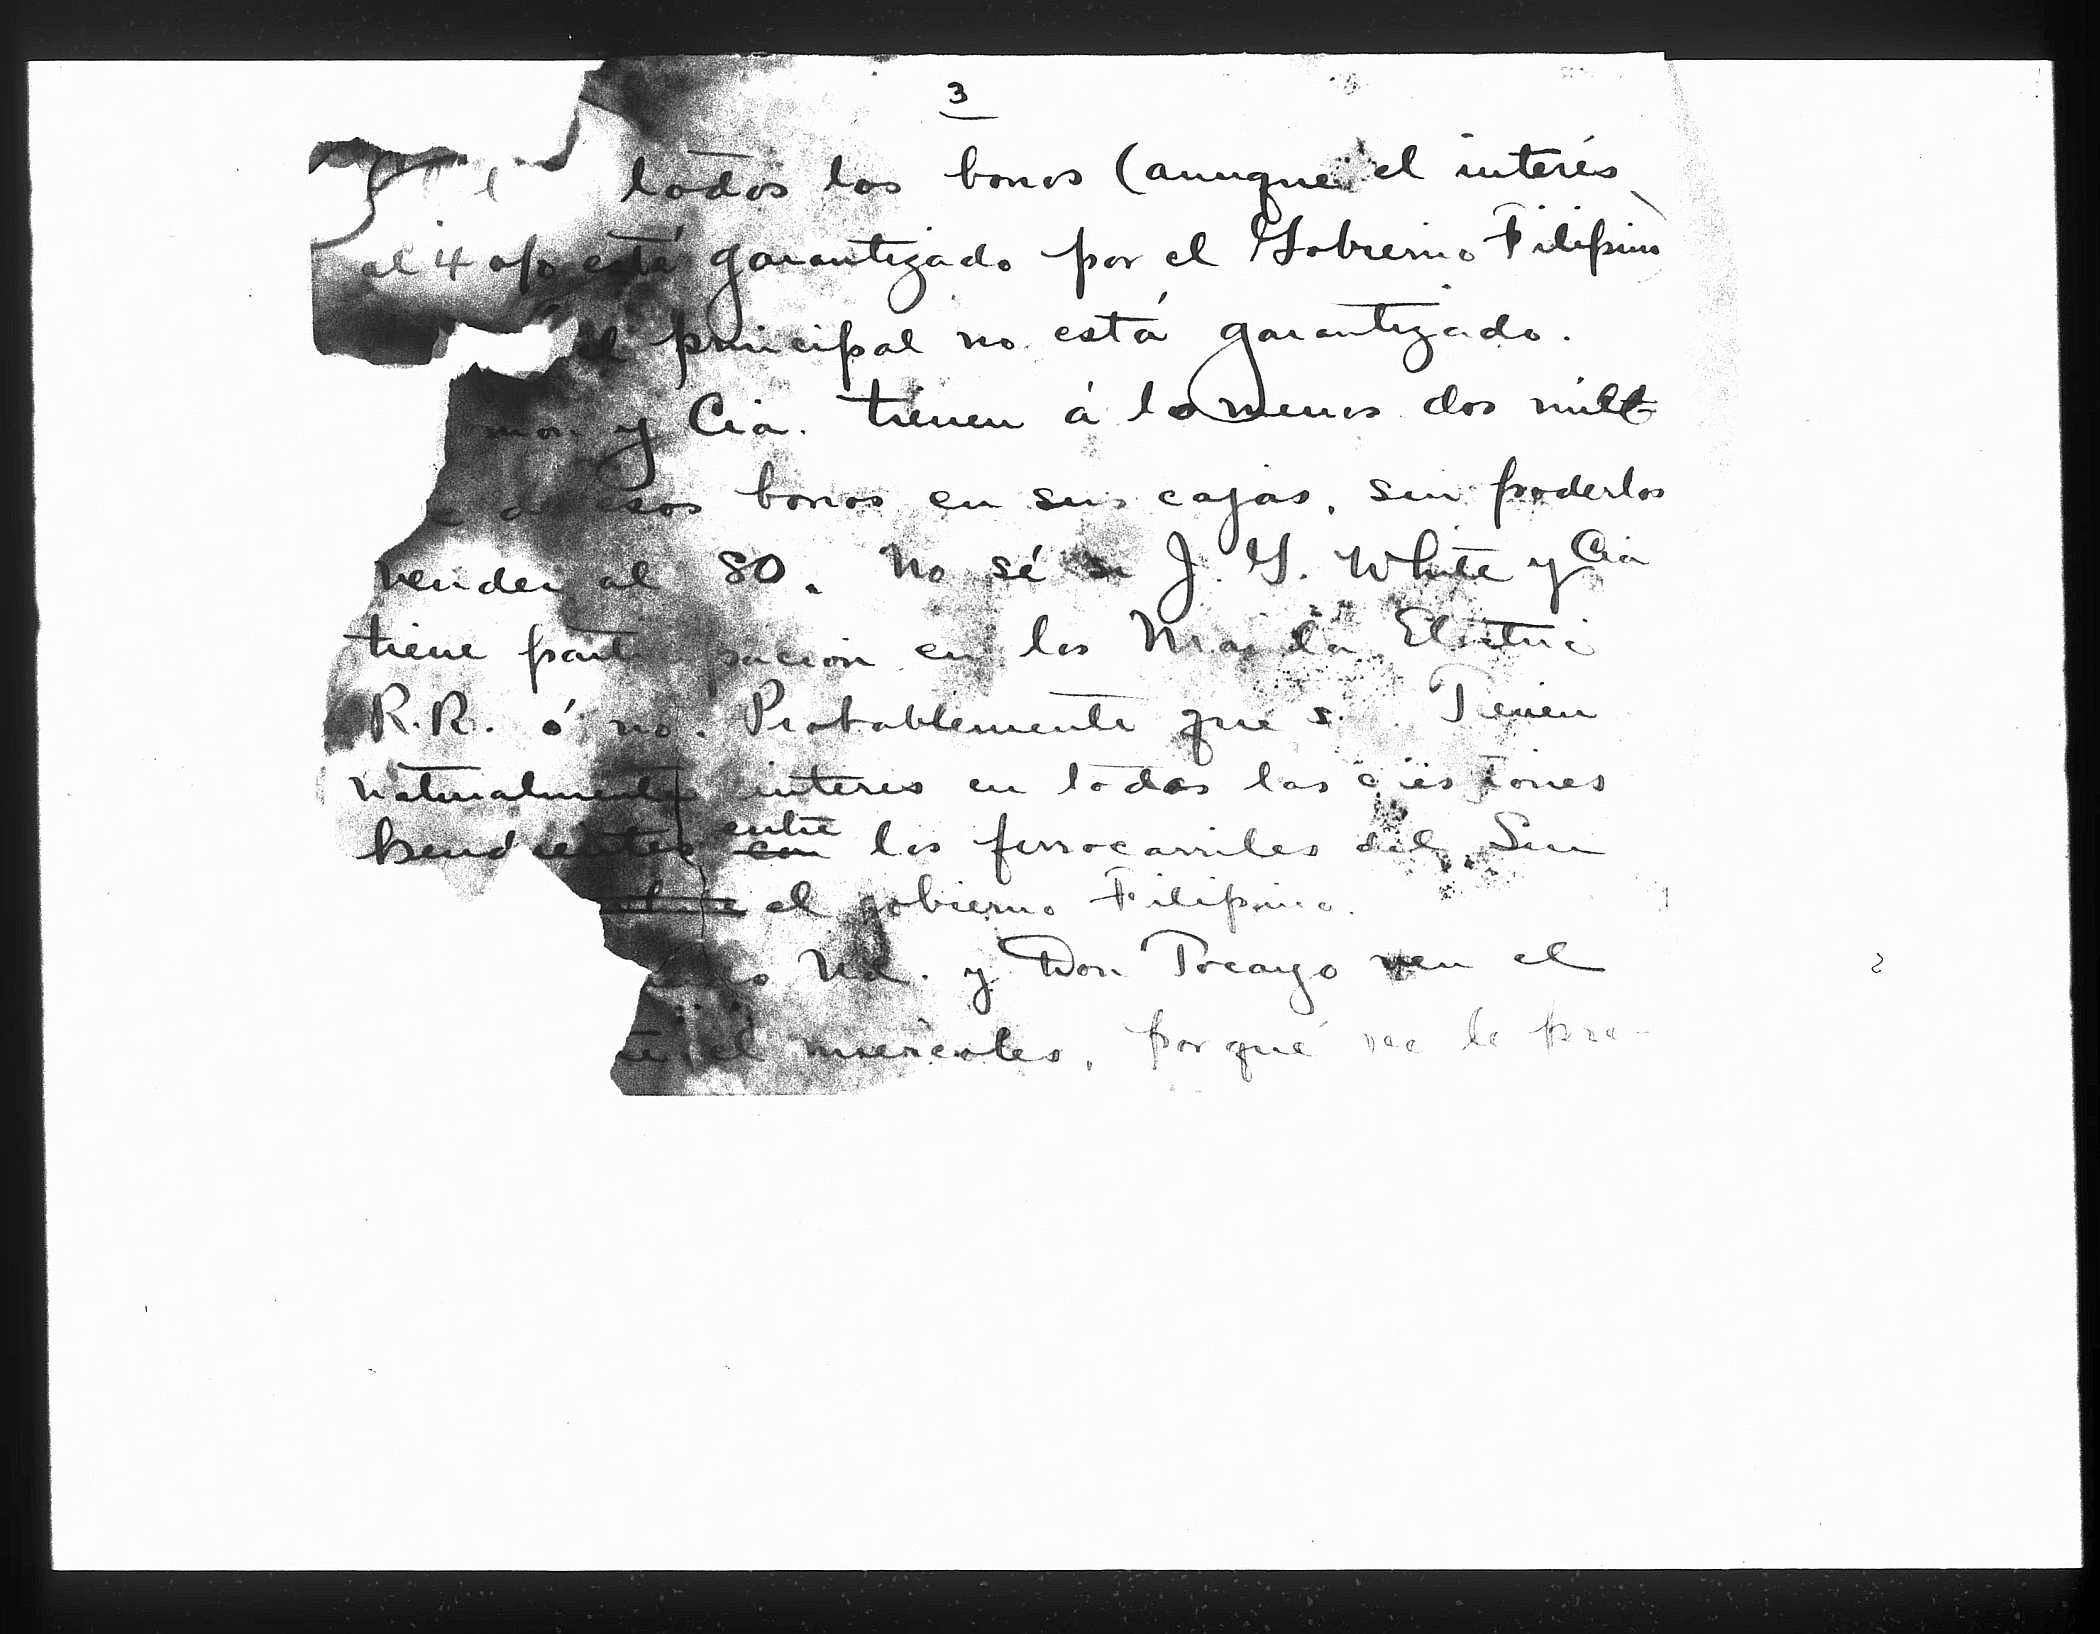 3
todos los bonos (aunque el interés
al 4 o/o está garantizado por el Gobierno Filipino)
el principal no está garantizado.
y Cia. tienen á lo menos dos mill
esos bonos en sus cajas, sin poderlos
vender al 80. No sé si J. G. White y Cia
tiene participacion en los Manila Electric
R.R. ó no. Probablemente que si. Tienen
naturalmente interes en todas las cuestiones
pendientes entre con los ferrocarriles del Sur
el gobierno Filipino.
Ud. y Don Tocayo ven el
el miercoles, porqué